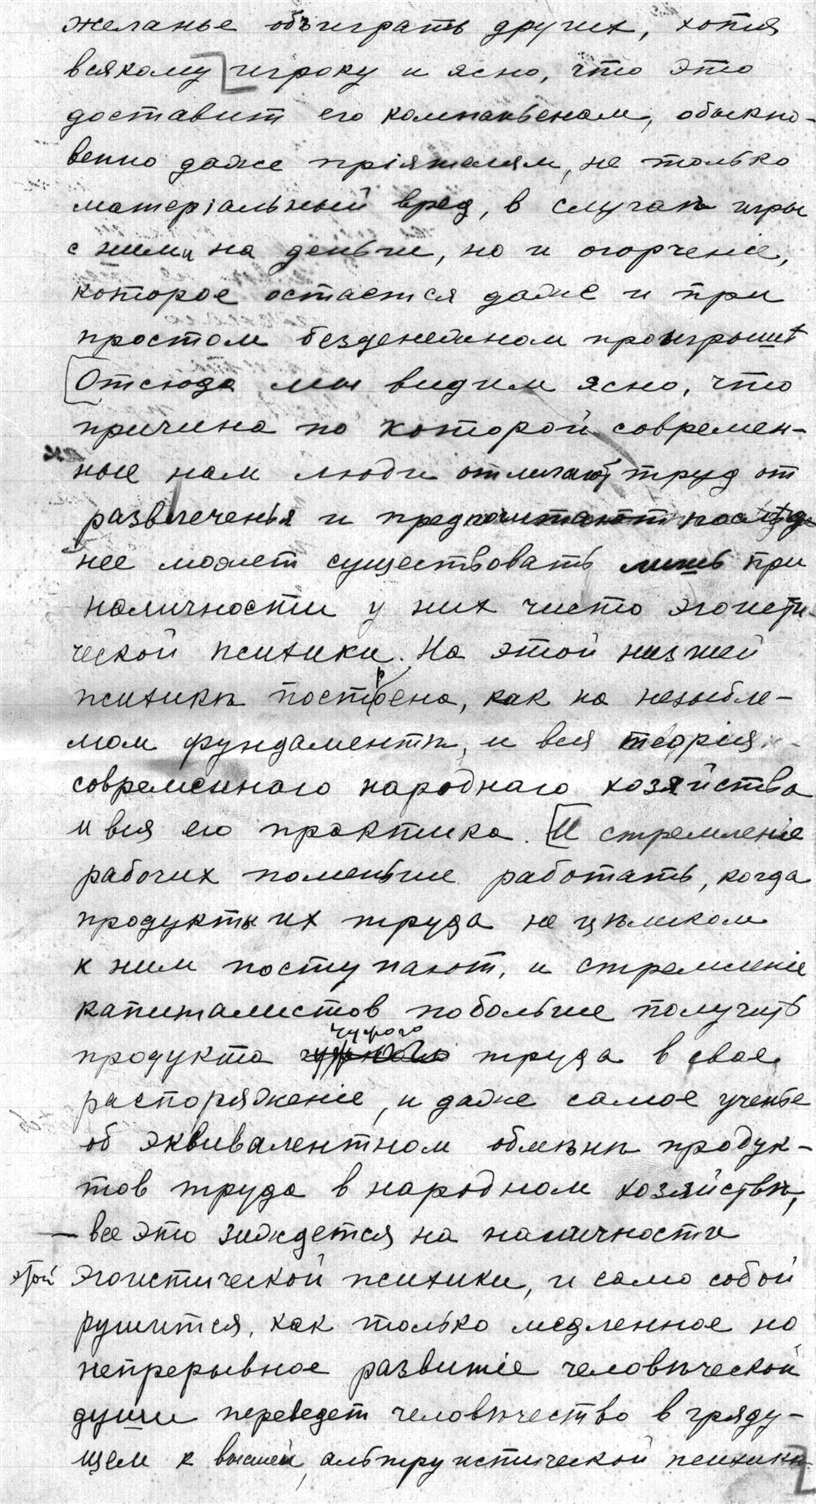 желанье объиграть других, хотя
всякому игроку и ясно, что это
доставит его компаньенам, обыкно-
венно даже пріятелям, не только
матеріальный вред, в случаѣ игры
с ними на деньги, но и огорченіе,
которое остается даже и при
простом безденежном проигрышѣ
Отсюда мы видим ясно, что
причина по которой современ-
ные нам люди отличают труд от
развлеченья и предпочитают послѣд-
нее может существовать лишь при
наличности у них чисто эгоисти-
ческой психики. На этой низшей
психикѣ построена, как на незыбле-
мом фундаментѣ, и вся теорія
современнаго народнаго хозяйства
и вся его практика. И стремленіе
рабочих поменьше работать, когда
продукты их труда не цѣликом
к ним поступают, и стремленіе
капиталистов побольше получить
чужого
продукта труда в свое
распоряженіе, и даже самое ученье
об эквивалентном обмѣнѣ продук-
тов труда в народном хозяйствѣ,
— все это зиждется на наличности
этой эгоистической психики, и само собой
рушится, как только медленное но
непрерывное развитіе человѣческой
души переведет человѣчество в гряду-
щем к высшей, альтруистической психикѣ